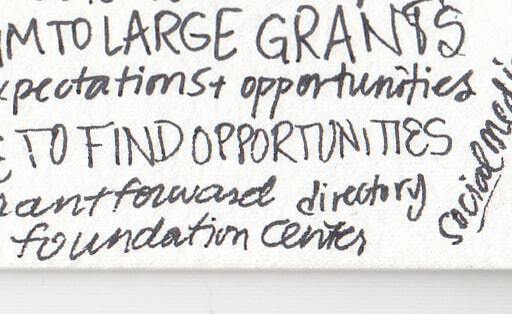 M TO LARGE GRANTS
xpectations + opportunities
E TO FIND OPPORTUNITIES
rantforward directory
foundation center
social medi